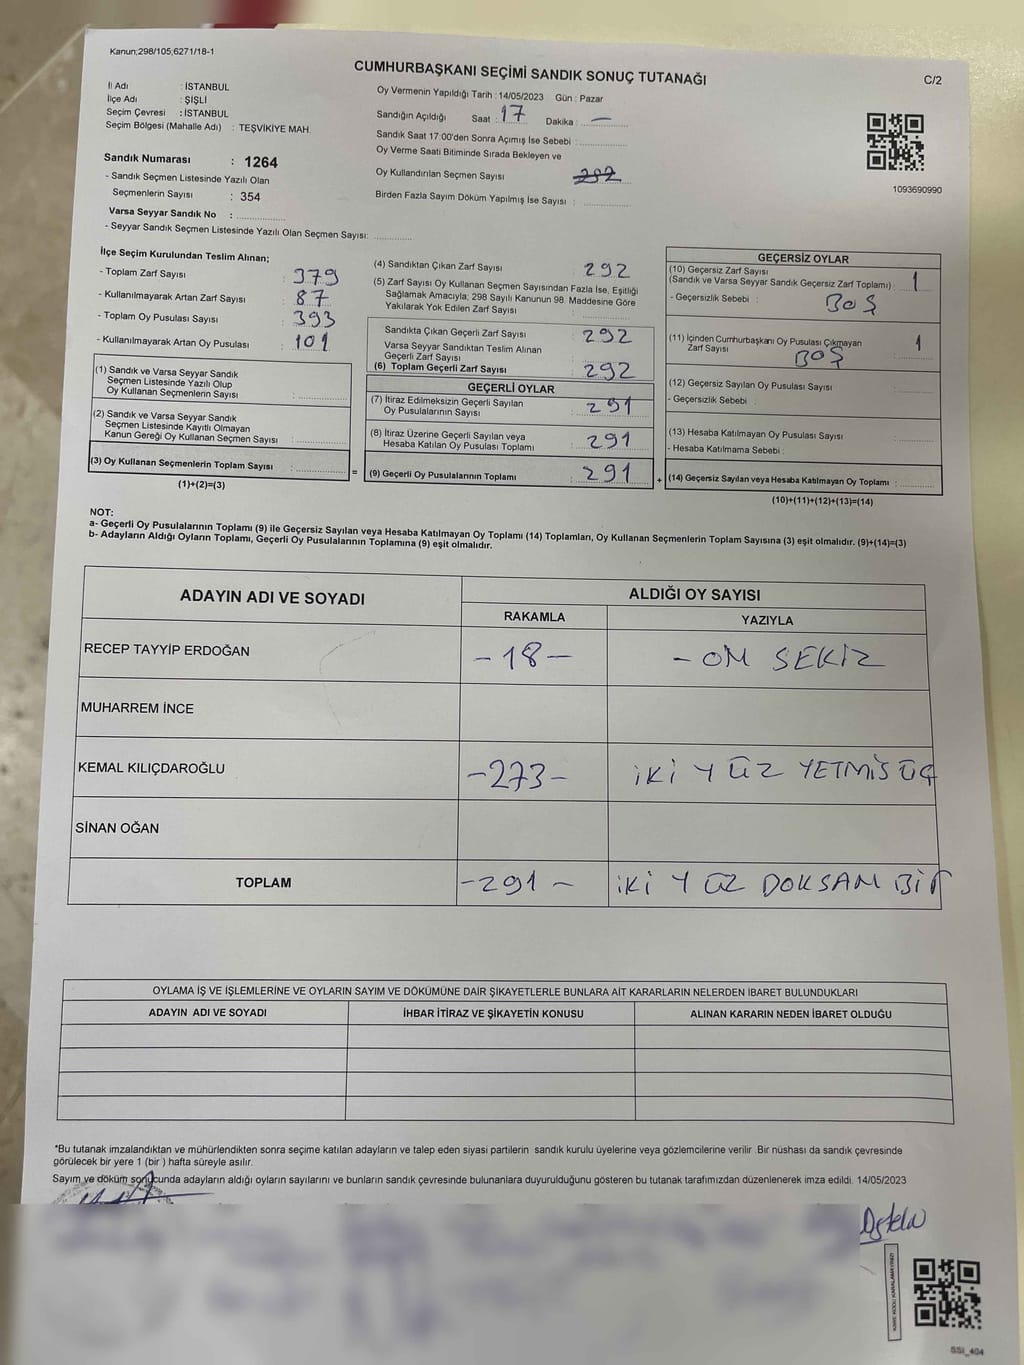 Kanun;298/105,6271/18-1
CUMHURBAŞKANI SEÇİMİ SANDIK SONUÇ TUTANAĞI
C/2
İl Adı : İSTANBUL
İlçe Adı : ŞİŞLİ
Seçim Çevresi : İSTANBUL
Seçim Bölgesi (Mahalle Adı) : TEŞVİKİYE MAH.
Sandık Numarası : 1264
- Sandık Seçmen Listesinde Yazılı Olan
Seçmenlerin Sayısı : 354
Varsa Seyyar Sandık No :
- Seyyar Sandık Seçmen Listesinde Yazılı Olan Seçmen Sayısı:
Oy Vermenin Yapıldığı Tarih : 14/05/2023 Gün : Pazar
Sandığın Açıldığı Saat : 17 Dakika : —
Sandık Saat 17:00'den Sonra Açımış İse Sebebi :
Oy Verme Saati Bitiminde Sırada Bekleyen ve
Oy Kullandırılan Seçmen Sayısı 292
Birden Fazla Sayım Döküm Yapılmış İse Sayısı :
1093690990
İlçe Seçim Kurulundan Teslim Alınan;
- Toplam Zarf Sayısı : 379
- Kullanılmayarak Artan Zarf Sayısı : 87
- Toplam Oy Pusulası Sayısı : 393
- Kullanılmayarak Artan Oy Pusulası : 101
(1) Sandık ve Varsa Seyyar Sandık
Seçmen Listesinde Yazılı Olup
Oy Kullanan Seçmenlerin Sayısı :
(2) Sandık ve Varsa Seyyar Sandık
Seçmen Listesinde Kayıtlı Olmayan
Kanun Gereği Oy Kullanan Seçmen Sayısı :
(3) Oy Kullanan Seçmenlerin Toplam Sayısı :
(1)+(2)=(3)
(4) Sandıktan Çıkan Zarf Sayısı : 292
(5) Zarf Sayısı Oy Kullanan Seçmen Sayısından Fazla İse, Eşitliği
Sağlamak Amacıyla; 298 Sayılı Kanunun 98. Maddesine Göre
Yakılarak Yok Edilen Zarf Sayısı :
Sandıkta Çıkan Geçerli Zarf Sayısı : 292
Varsa Seyyar Sandıktan Teslim Alınan
Geçerli Zarf Sayısı :
(6) Toplam Geçerli Zarf Sayısı : 292
GEÇERLİ OYLAR
(7) İtiraz Edilmeksizin Geçerli Sayılan
Oy Pusulalarının Sayısı : 291
(8) İtiraz Üzerine Geçerli Sayılan veya
Hesaba Katılan Oy Pusulası Toplamı : 291
= (9) Geçerli Oy Pusulalarının Toplamı : 291 +
GEÇERSİZ OYLAR
(10) Geçersiz Zarf Sayısı
(Sandık ve Varsa Seyyar Sandık Geçersiz Zarf Toplamı) : 1
- Geçersizlik Sebebi : BOŞ
(11) İçinden Cumhurbaşkanı Oy Pusulası Çıkmayan
Zarf Sayısı : 1
BOŞ
(12) Geçersiz Sayılan Oy Pusulası Sayısı :
- Geçersizlik Sebebi :
(13) Hesaba Katılmayan Oy Pusulası Sayısı :
- Hesaba Katılmama Sebebi :
(14) Geçersiz Sayılan veya Hesaba Katılmayan Oy Toplamı :
(10)+(11)+(12)+(13)=(14)
NOT:
a- Geçerli Oy Pusulalarının Toplamı (9) ile Geçersiz Sayılan veya Hesaba Katılmayan Oy Toplamı (14) Toplamları, Oy Kullanan Seçmenlerin Toplam Sayısına (3) eşit olmalıdır. (9)+(14)=(3)
b- Adayların Aldığı Oyların Toplamı, Geçerli Oy Pusulalarının Toplamına (9) eşit olmalıdır.
ADAYIN ADI VE SOYADI
ALDIĞI OY SAYISI
RAKAMLA YAZIYLA
RECEP TAYYİP ERDOĞAN -18- - ON SEKİZ
MUHARREM İNCE
KEMAL KILIÇDAROĞLU -273- İKİ YÜZ YETMİŞ ÜÇ
SİNAN OĞAN
TOPLAM -291- İKİ YÜZ DOKSAN BİR
OYLAMA İŞ VE İŞLEMLERİNE VE OYLARIN SAYIM VE DÖKÜMÜNE DAİR ŞİKAYETLERLE BUNLARA AİT KARARLARIN NELERDEN İBARET BULUNDUKLARI
ADAYIN ADI VE SOYADI İHBAR İTİRAZ VE ŞİKAYETİN KONUSU ALINAN KARARIN NEDEN İBARET OLDUĞU
*Bu tutanak imzalandıktan ve mühürlendikten sonra seçime katılan adayların ve talep eden siyasi partilerin sandık kurulu üyelerine veya gözlemcilerine verilir. Bir nüshası da sandık çevresinde
görülecek bir yere 1 (bir ) hafta süreyle asılır.
Sayım ve döküm sonucunda adayların aldığı oyların sayılarını ve bunların sandık çevresinde bulunanlara duyurulduğunu gösteren bu tutanak tarafımızdan düzenlenerek imza edildi. 14/05/2023
SSI_404